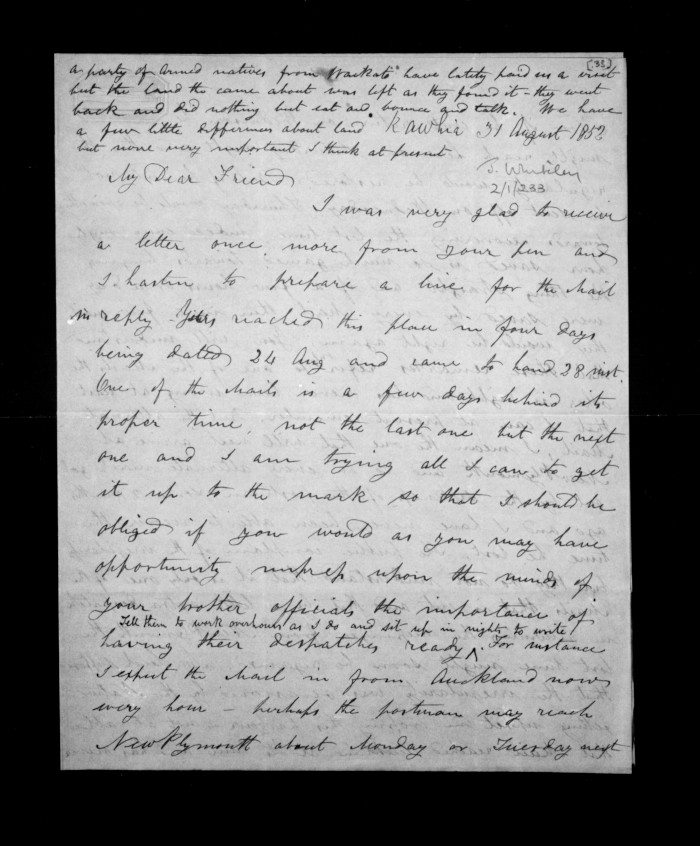 [33]
a party of armed natives from Waikato have lately paid us a visit
but the land the came about was left as they found it - they went
back and did nothing but eat and bounce and talk. We have
a few little differences about land Kawhia 31 August 1852
but none very important I think at present
J. Whiteley
2/1/233
My Dear Friend
I was very glad to receive
a letter once more from your pen and
I hasten to prepare a line for the Mail
in reply. Yours reached this place in four days
being dated 24 Aug and came to hand 28 inst.
One of the Mails is a few days behind its
proper time, not the last one but the next
one and I am trying all I can to get
it up to the mark so that I should be
obliged if you would as you may have
opportunity impress upon the minds of
your brother officials the importance of
Tell them to work overhours as I do and sit up in nights to write
having their despatches ready ^. For instance
I expect the Mail in from Auckland now
every hour - perhaps the postman may reach
New Plymouth about Monday or Tuesday next